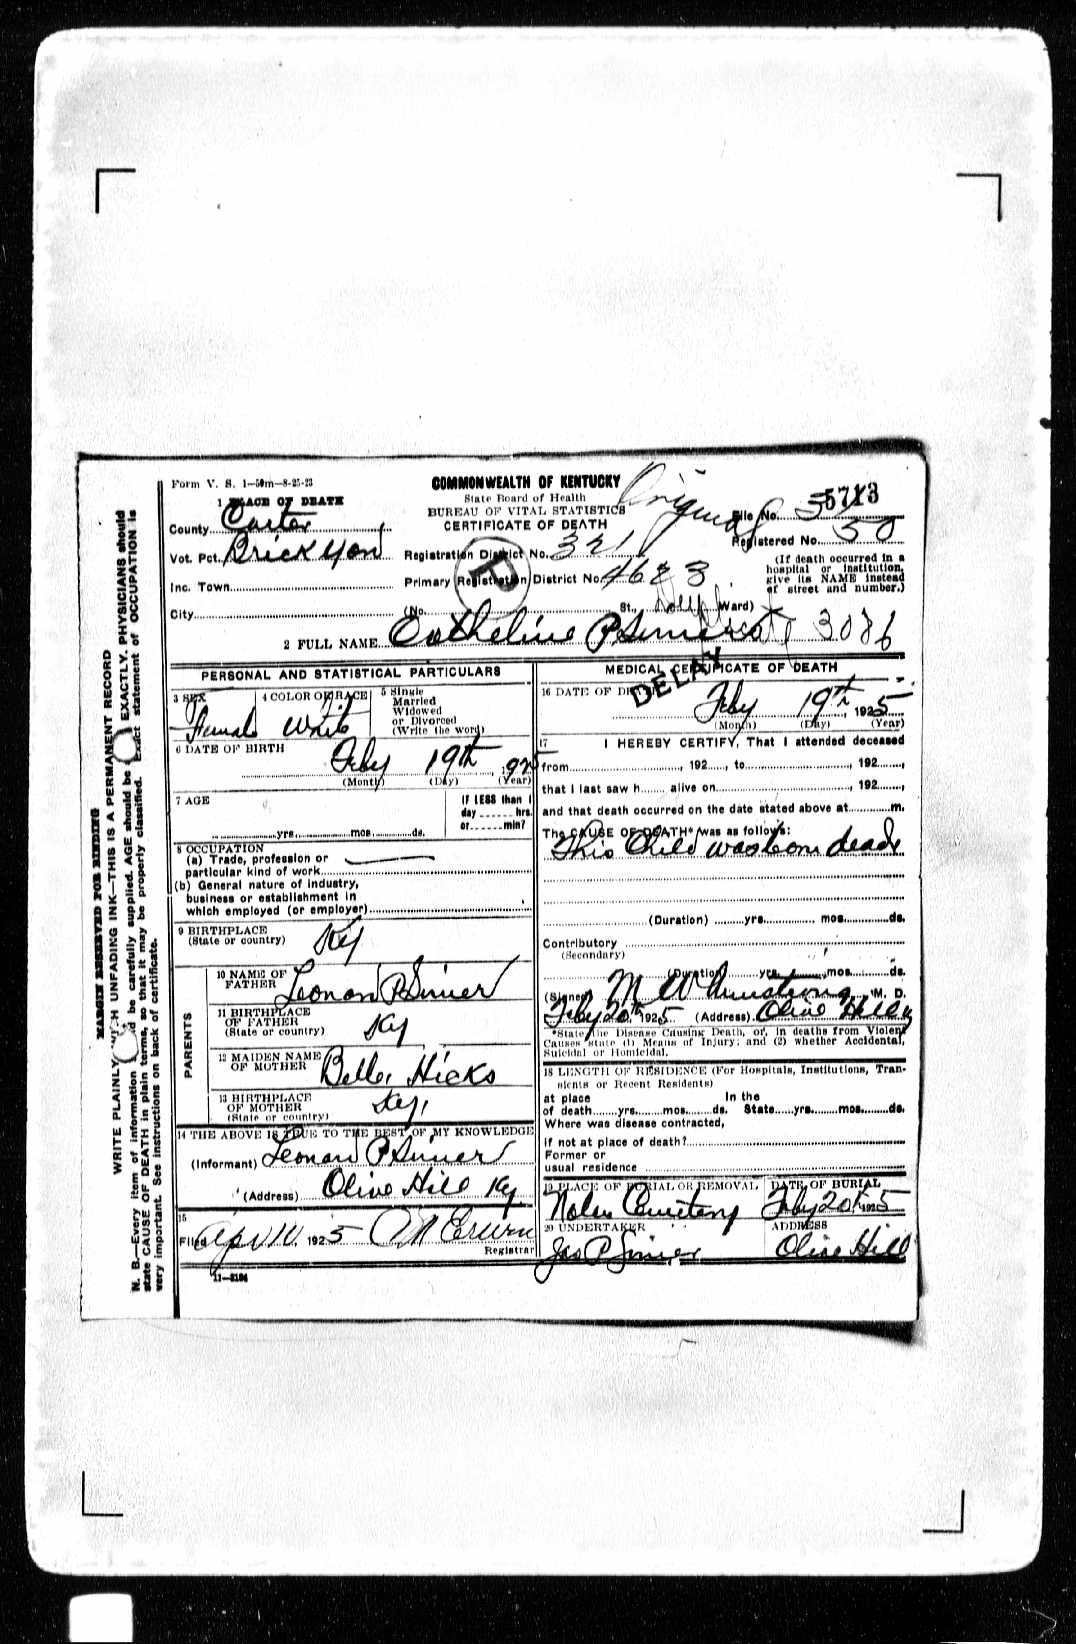 Form V. S. 1—50m—8-25-23
COMMONWEALTH OF KENTUCKY
State Board of Health
BUREAU OF VITAL STATISTICS
CERTIFICATE OF DEATH
Original
1 PLACE OF DEATH
County Carter
Vot. Pct.
Inc. Town
City
File No. 5713
Registered No. 50
Registration District No. 321
Primary Registration District No. 4623
(If death occurred in a hospital or institution, give its NAME instead of street and number.)
P
(No. St., Ward)
2 FULL NAME
3086
DELAY
PERSONAL AND STATISTICAL PARTICULARS
3 SEX
Female
4 COLOR OR RACE
White
5 Single
Married
Widowed
or Divorced
(Write the word)
6 DATE OF BIRTH
Feby 19th, 1925
(Month) (Day) (Year)
7 AGE
yrs. mos. ds.
If LESS than 1
day hrs.
or min?
8 OCCUPATION
(a) Trade, profession or
particular kind of work
(b) General nature of industry,
business or establishment in
which employed (or employer)
9 BIRTHPLACE
(State or country) Ky
PARENTS
10 NAME OF
FATHER
11 BIRTHPLACE
OF FATHER
(State or country) Ky
12 MAIDEN NAME
OF MOTHER Belle Hicks
13 BIRTHPLACE
OF MOTHER
(State or country) Ky.
14 THE ABOVE IS TRUE TO THE BEST OF MY KNOWLEDGE
(Informant)
(Address) Olive Hill Ky.
15
Filed Apr 10, 1925
Registrar
11—3184
MEDICAL CERTIFICATE OF DEATH
16 DATE OF DEATH
Feby 19th, 1925
(Month) (Day) (Year)
17 I HEREBY CERTIFY, That I attended deceased
from , 192 , to , 192 ,
that I last saw h alive on , 192 ,
and that death occurred on the date stated above at m.
The CAUSE OF DEATH* was as follows:
This Child was born dead
(Duration) yrs. mos. ds.
Contributory
(Secondary)
(Duration) yrs. mos. ds.
(Signed) M W Armstrong, M. D.
Feby 20th, 1925 (Address) Olive Hill Ky
*State the Disease Causing Death, or, in deaths from Violent
Causes state (1) Means of Injury; and (2) whether Accidental,
Suicidal or Homicidal.
18 LENGTH OF RESIDENCE (For Hospitals, Institutions, Tran-
sients or Recent Residents)
at place In the
of death yrs. mos. ds. State yrs. mos. ds.
Where was disease contracted,
if not at place of death?
Former or
usual residence
19 PLACE OF BURIAL OR REMOVAL
DATE OF BURIAL
Feby 20th 1925
20 UNDERTAKER
ADDRESS
Olive Hill
MARGIN RESERVED FOR BINDING
WRITE PLAINLY WITH UNFADING INK—THIS IS A PERMANENT RECORD
N. B.—Every item of information should be carefully supplied. AGE should be EXACTLY. PHYSICIANS should
state CAUSE OF DEATH in plain terms, so that it may be properly classified. Exact statement of OCCUPATION is
very important. See instructions on back of certificate.